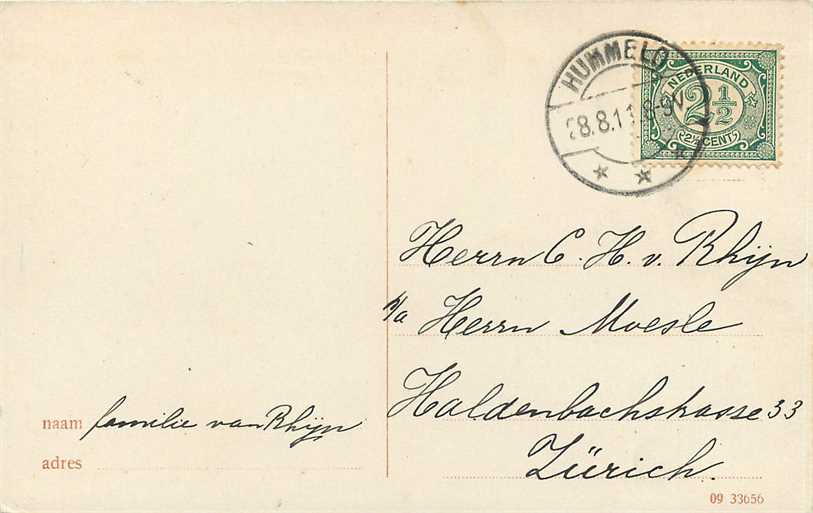 HUMMELO
28.8.11 8-9V
NEDERLAND
2 1/2
2½ CENT
Herrn C. H. v. Rhijn
p/a Herrn Moesle
Haldenbachstrasse 33
Zürich.
naam familie van Rhijn
adres
09 33656